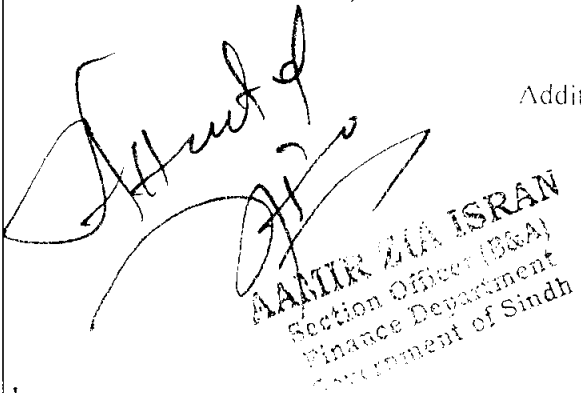 Addit
AAMIR ZIA ISRAN
Section Officer (B&A)
Finance Department
Government of Sindh